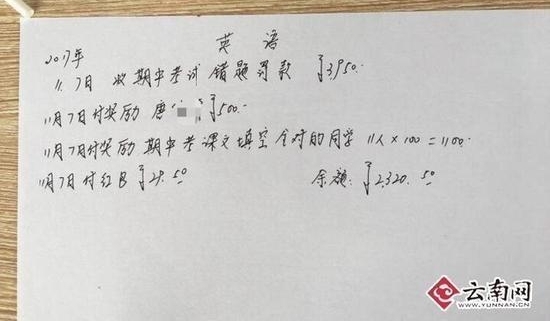 英语
2017年
11.7日 收期中考试错题罚款 ¥3950.-
11月7日付奖励 唐 ¥500.-
11月7日付奖励 期中考课文填空全对的同学 11人×100=1100.-
11月7日付红包 ¥29.50 余额:¥2320.50
云南网
WWW.YUNNAN.CN